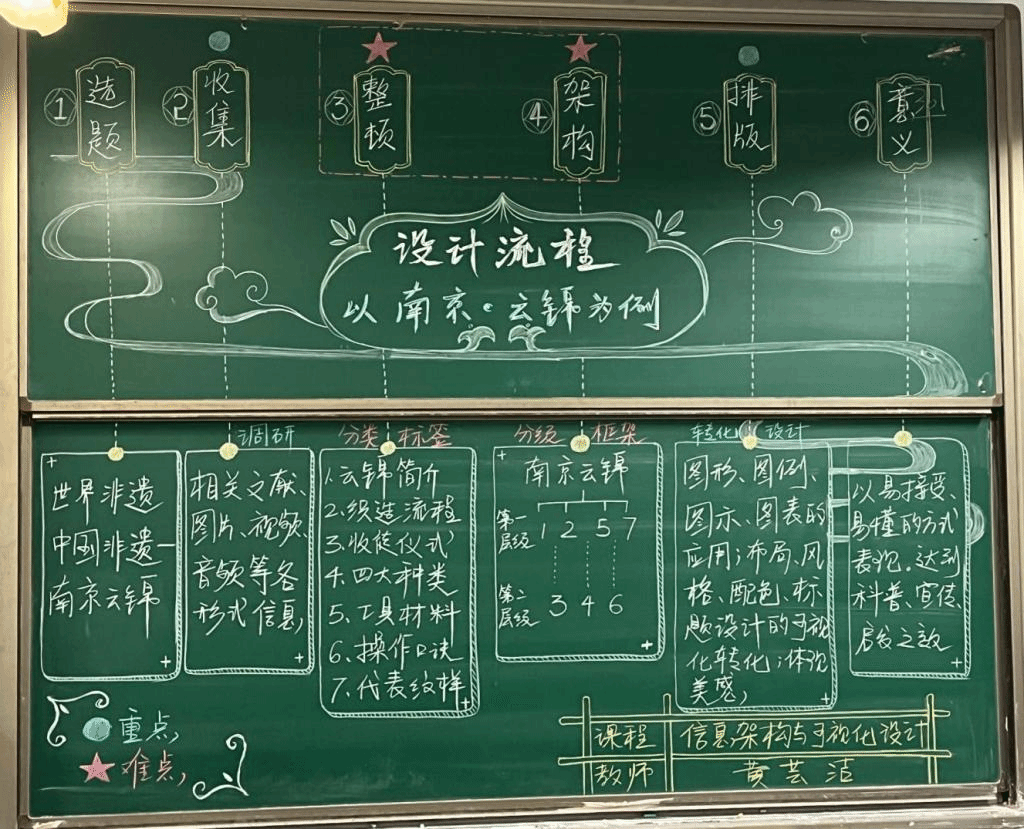 ① 选题
② 收集
③ 整顿
④ 架构
⑤ 排版
⑥ 意义
设计流程
以南京·云锦为例
世界非遗
中国非遗
南京云锦
调研
相关文献、
图片、视频、
音频等各
形式信息,
分类 标签
1.云锦简介
2.织造流程
3.收徒仪式
4.四大种类
5.工具材料
6.操作口诀
7.代表纹样
分级 框架
南京云锦
第一层级 1 2 5 7
第二层级 3 4 6
转化 设计
图形、图例、
图示、图表的
应用;布局、风
格、配色、标
题设计的可视
化转化;体现
美感,
以易接受、
易懂的方式
表现。达到
科普、宣传、
启发之效
重点,
难点,
课程 信息架构与可视化设计
教师 黄芸洁